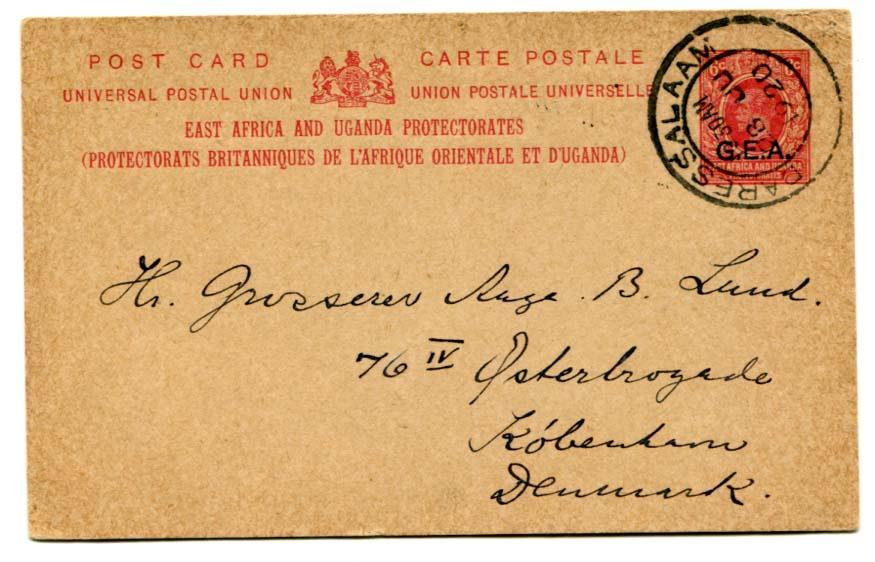 POST CARD CARTE POSTALE
UNIVERSAL POSTAL UNION UNION POSTALE UNIVERSELLE
EAST AFRICA AND UGANDA PROTECTORATES
(PROTECTORATS BRITANNIQUES DE L'AFRIQUE ORIENTALE ET D'UGANDA)
DARESSALAAM
30AM
18 JU
20
G.E.A.
EAST AFRICA AND UGANDA
PROTECTORATES
Hr. Grosserer Aage. B. Lund.
76 IV Østerbrogade
København
Denmark.